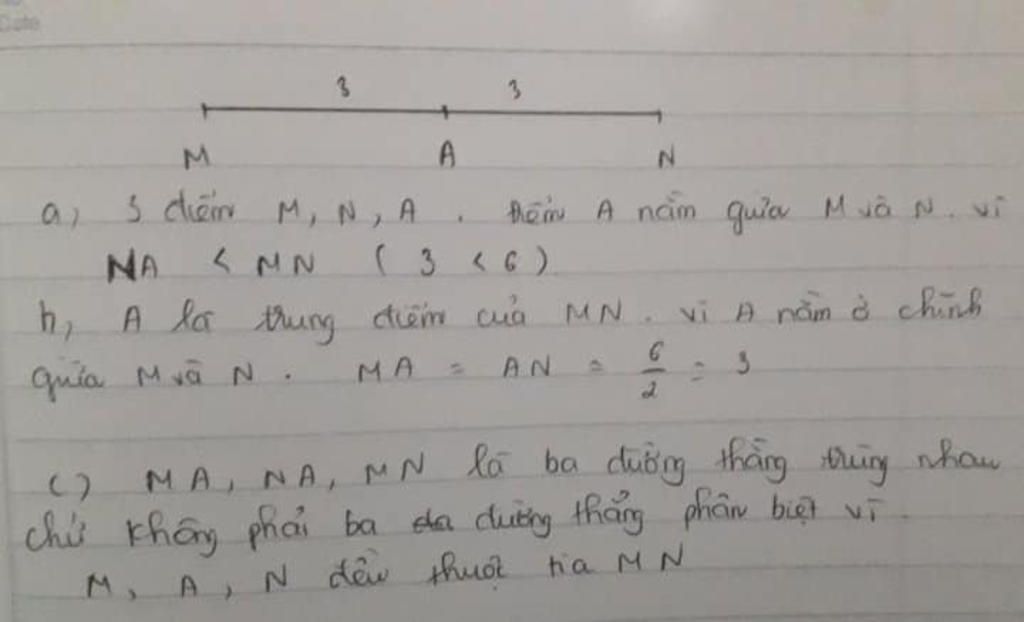 Date
3 3
M A N
a, 3 điểm M, N, A . Điểm A nằm giữa M và N . vì
NA < MN ( 3 < 6 )
b, A là trung điểm của MN . vì A nằm ở chính
giữa M và N . MA = AN = 6/2 = 3
c) MA, NA, MN là ba đường thẳng trùng nhau
chứ không phải ba đường thẳng phân biệt vì
M, A, N đều thuộc tia MN